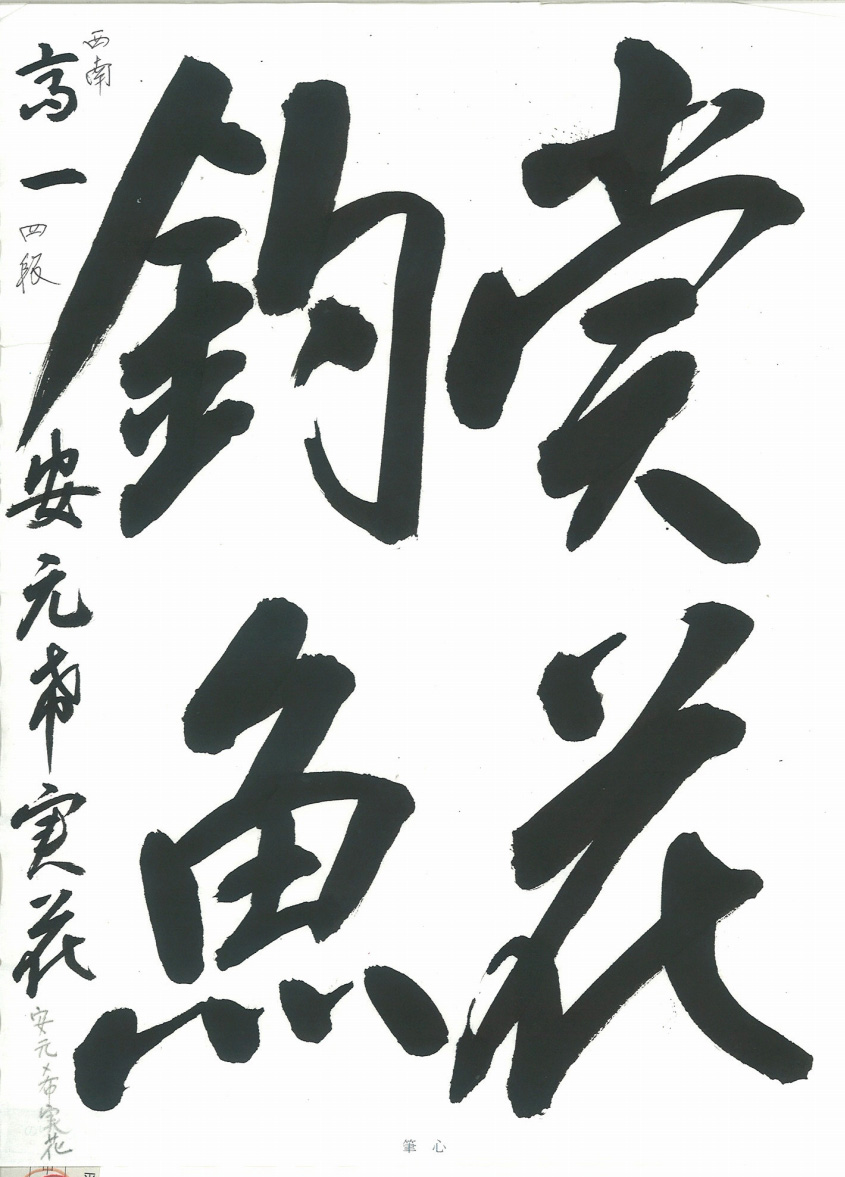 賞花
釣魚
西南
高一
四段
安元希実花
安元希実花
筆心